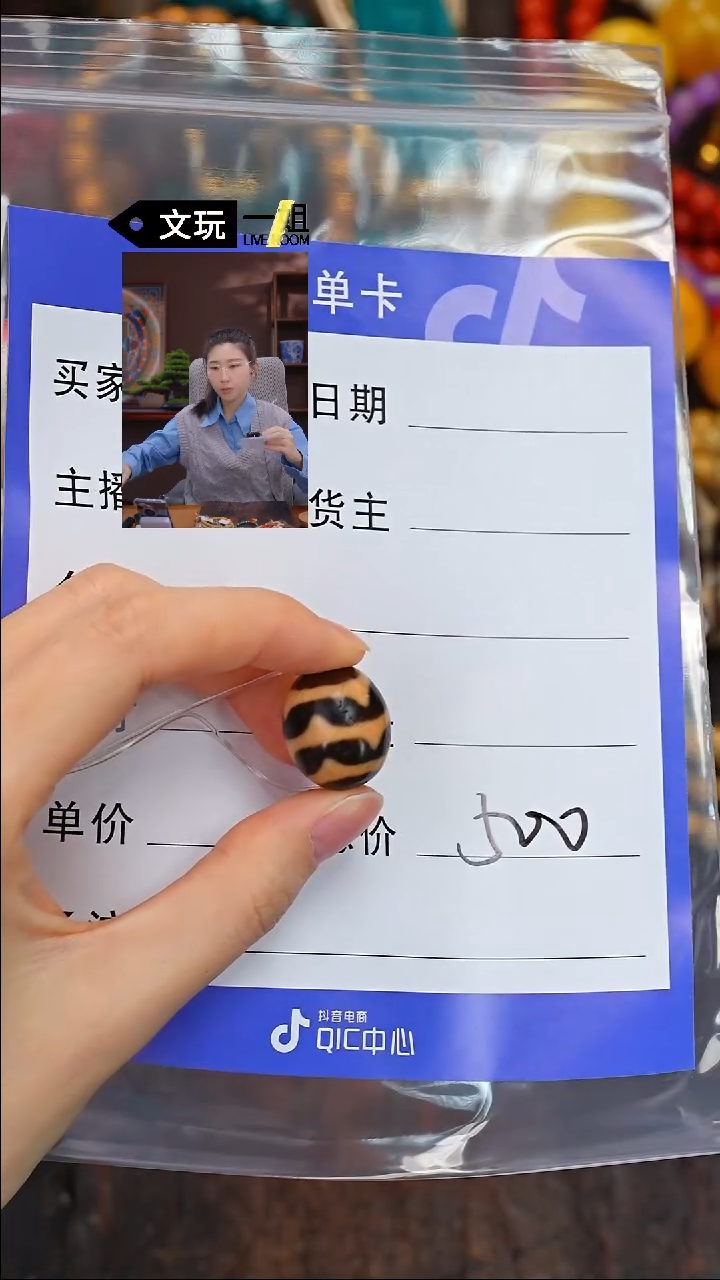 文玩 一组
LIVE ROOM
单卡
买家 日期
主播 货主
单价 总价 500
抖音电商
QIC中心